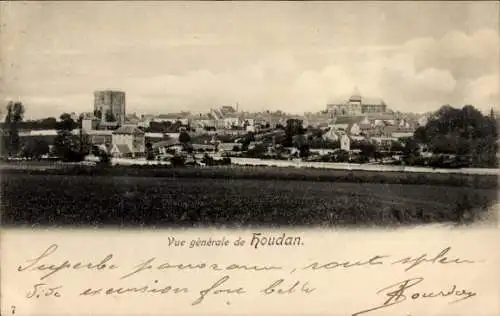 Vue générale de Houdan.
Superbe panorama, route splen
dide excursion fort belle
7